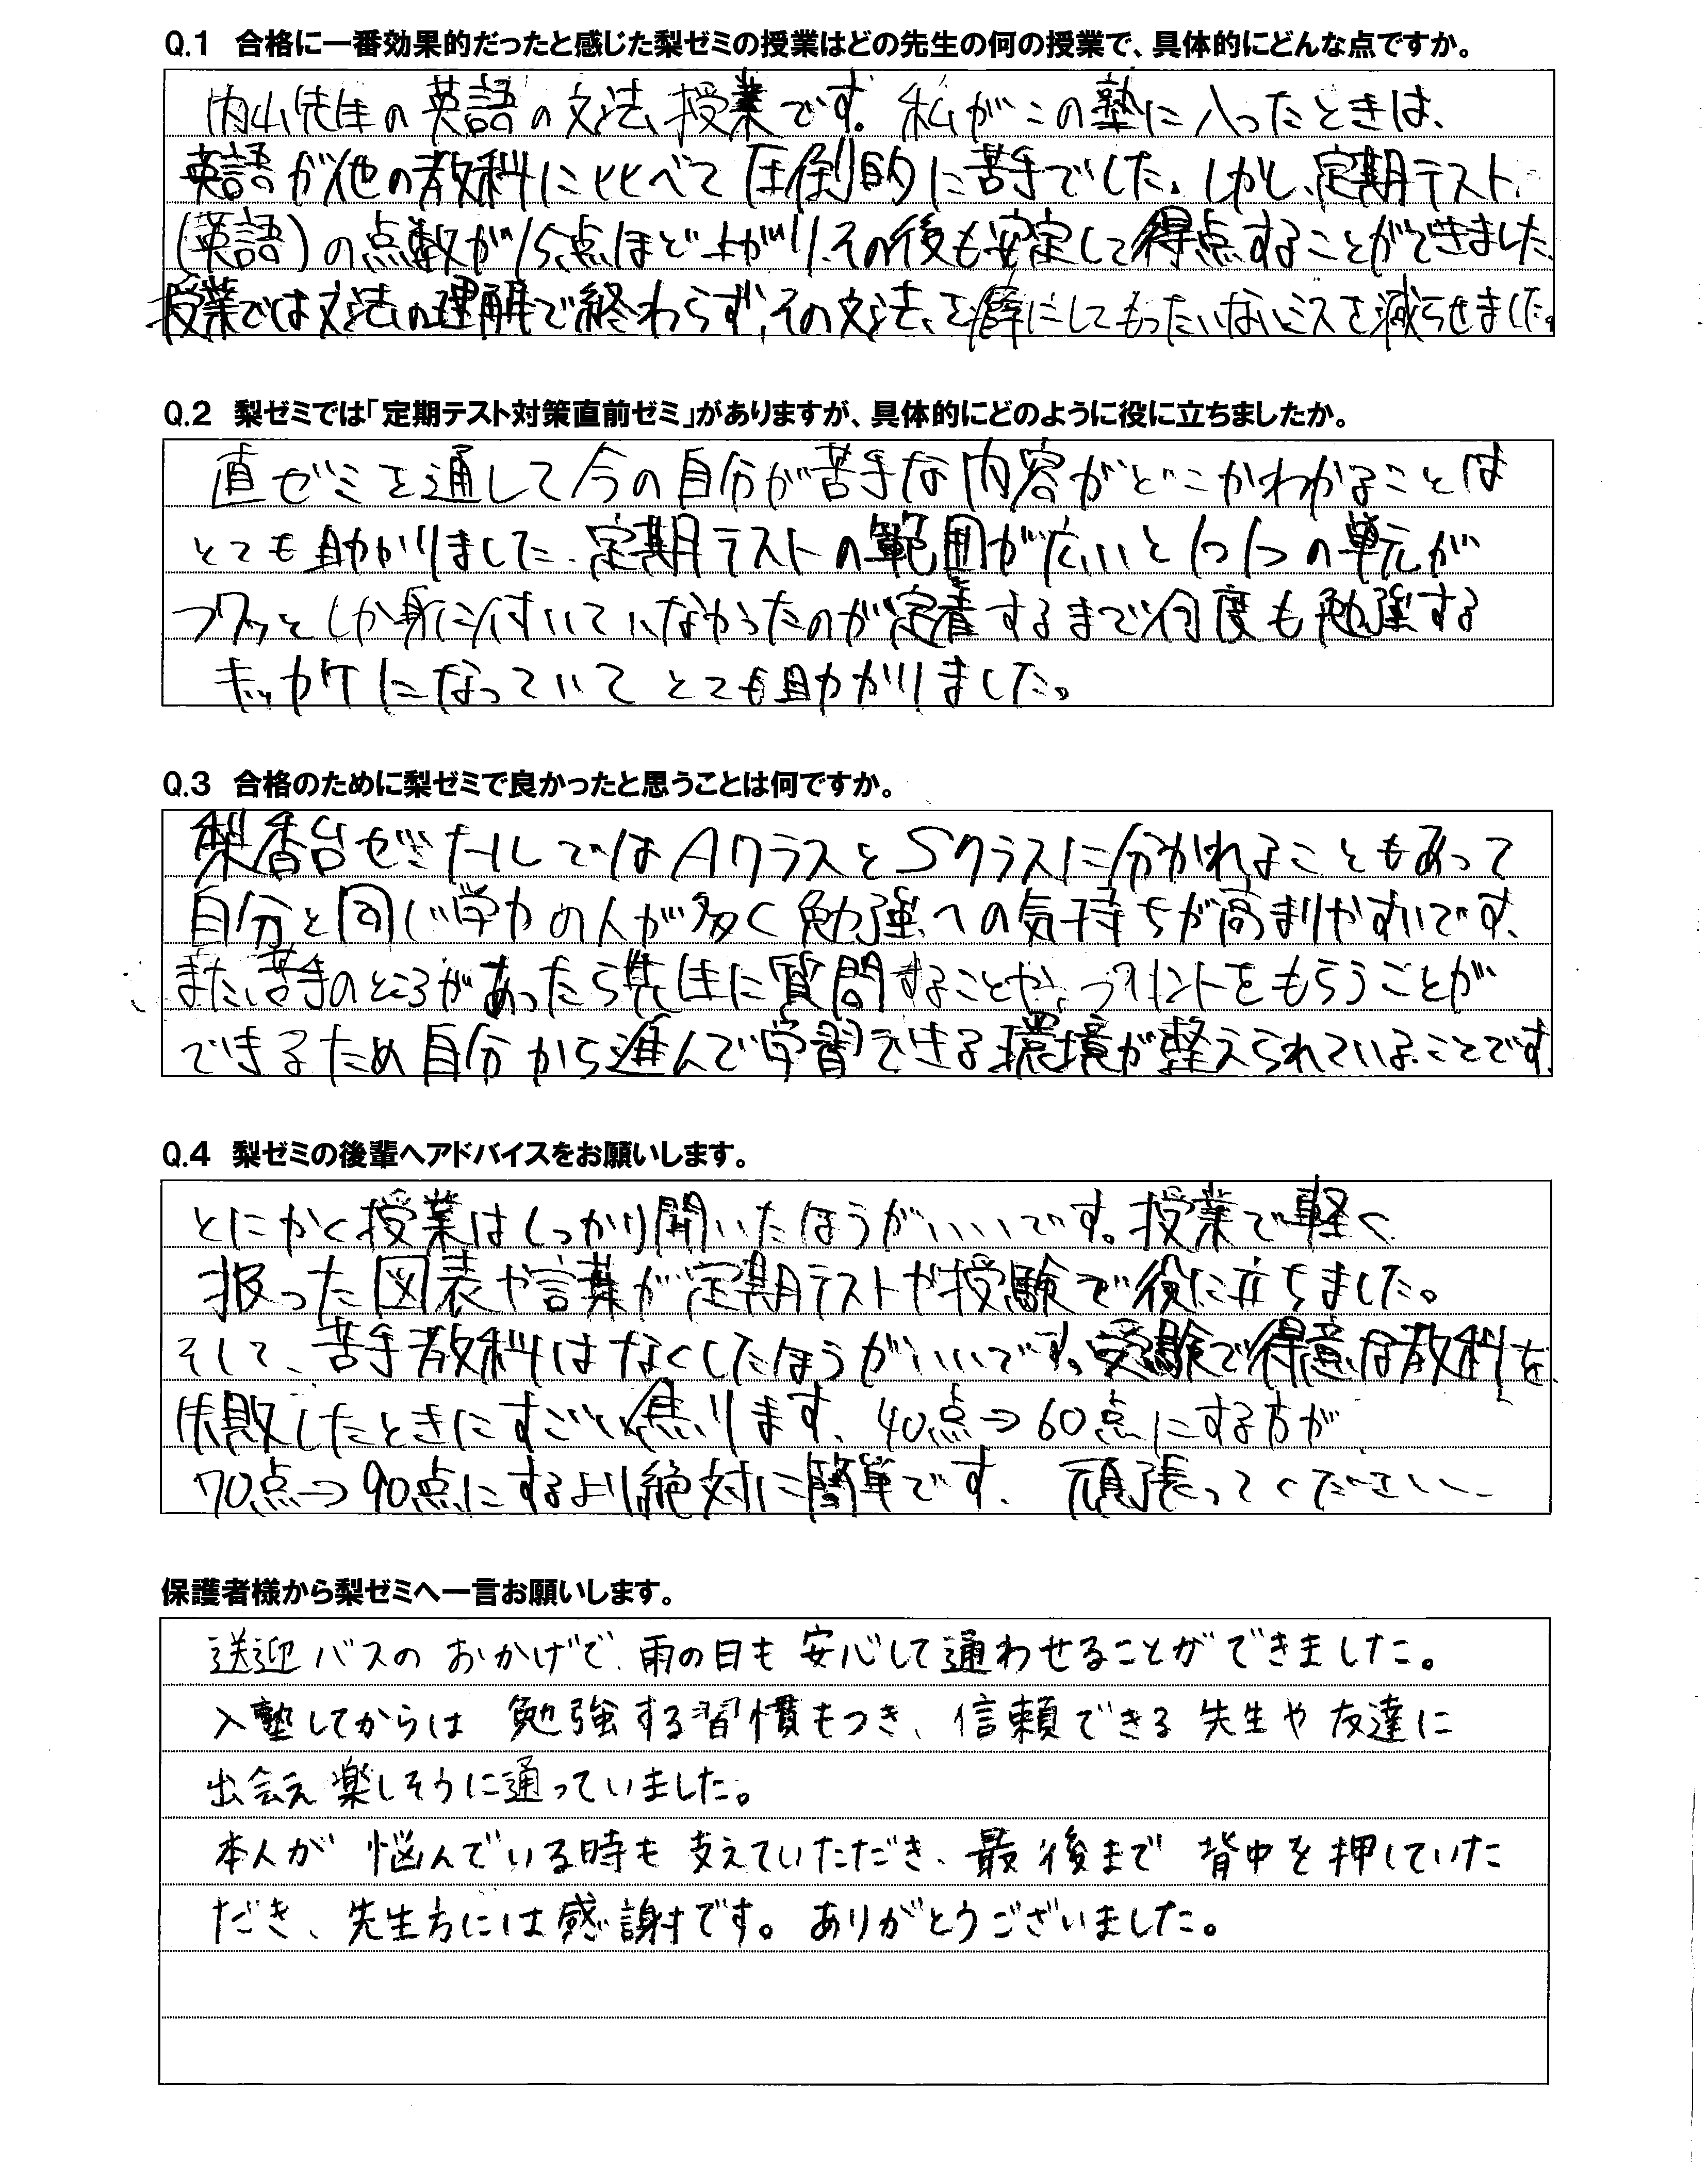 Q.1 合格に一番効果的だったと感じた梨ゼミの授業はどの先生の何の授業で、具体的にどんな点ですか。
内山先生の英語の文法授業です。私がこの塾に入ったときは、
英語が他の教科に比べて圧倒的に苦手でした。しかし、定期テスト
(英語)の点数が15点ほど上がり、その後も安定して得点することができました。
授業では文法の理解で終わらず、その文法を癖にしてもったいないミスを減らせました。
Q.2 梨ゼミでは「定期テスト対策直前ゼミ」がありますが、具体的にどのように役に立ちましたか。
直ゼミを通して今の自分が苦手な内容がどこかわかることは
とても助かりました。定期テストの範囲が広いと1つ1つの単元が
フワッとしか身に付いていなかったのが定着するまで何度も勉強する
キッカケになっていてとても助かりました。
Q.3 合格のために梨ゼミで良かったと思うことは何ですか。
梨香台ゼミナールではAクラスとSクラスに分かれることもあって
自分と同じ学力の人が多く勉強への気持ちが高まりやすいです。
また、苦手のところがあったら先生に質問することや、プリントをもらうことが
できるため自分から進んで学習できる環境が整えられていることです。
Q.4 梨ゼミの後輩へアドバイスをお願いします。
とにかく授業はしっかり聞いたほうがいいです。授業で軽く
扱った図表や言葉が定期テストや受験で役に立ちました。
そして、苦手教科はなくしたほうがいいです。受験で得意な教科を
失敗したときにすごい焦ります。40点→60点にする方が
70点→90点にするより絶対に簡単です。頑張ってください。
保護者様から梨ゼミへ一言お願いします。
送迎バスのおかげで、雨の日も安心して通わせることができました。
入塾してからは 勉強する習慣もつき、信頼できる先生や友達に
出会え楽しそうに通っていました。
本人が悩んでいる時も支えていただき、最後まで背中を押していた
だき、先生方には感謝です。ありがとうございました。